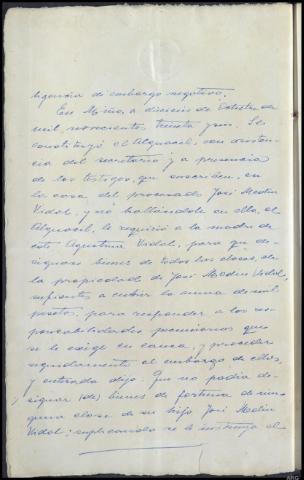 ligencia de embargo negativo.
En Miño, a dieciseis de Octubre de
mil novecientos treinta y uno. Se
constituyó el Alguacil, con asisten
cia del secretario y a presencia
de los testigos que suscriben, en
la casa del procesado José Medin
Vidal, y no hallándole en ella, el
Alguacil, le requirió a la madre de
éste Agustina Vidal, para que de-
signase bienes de todas las clases, de
la propiedad de José Medin Vidal,
suficientes a cubrir la suma de mil
pesetas, para responder a las res-
ponsabilidades pecuniarias que
se le exige en causa, y proceder
seguidamente al embargo de ellos,
y enterada dijo: Que no podía de-
signar (de) bienes de fortuna de nin-
guna clase de su hijo José Medin
Vidal; suplicando se le instruya el